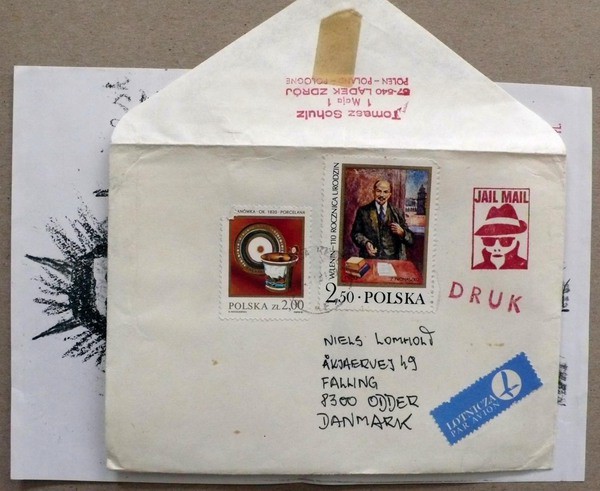 Tomasz Schulz
1 Maja 1
57-540 LĄDEK ZDRÓJ
POLEN - POLAND - POLOGNE
OK 1820 PORCELANA
POLSKA zł 2,00
W.LENIN-110 ROCZNICA URODZIN
2,50 · POLSKA
JAIL MAIL
DRUK
NIELS LOMHOLT
ÅKJAERVEJ 49
FALLING
8300 ODDER
DANMARK
LOTNICZA
PAR AVION